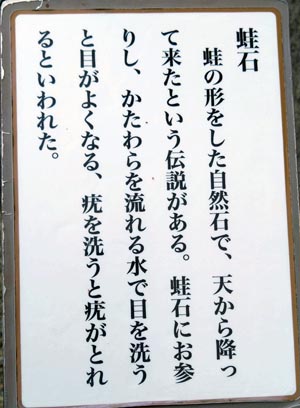 蛙石
蛙の形をした自然石で、天から降っ
て来たという伝説がある。蛙石にお参
りし、かたわらを流れる水で目を洗う
と目がよくなる、疣を洗うと疣がとれ
るといわれた。